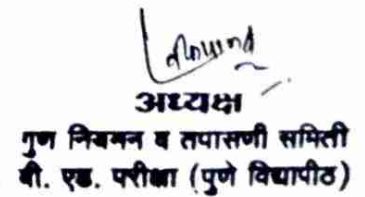 अध्यक्ष
गुण नियमन व तपासणी समिती
बी. एड. परीक्षा (पुणे विद्यापीठ)